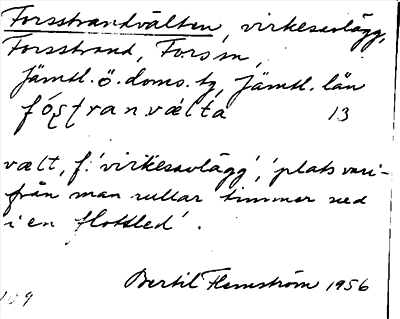 Forsstrandvälten, virkesavlägg,
Forsstrand, Fors sn,
Jämtl. ö. doms. tg, Jämtl. län
fóʂʈranvælta 13
vælt, f. 'virkesavlägg', 'plats vari-
från man rullar timmer ned
i en flottled'.
Bertil Flemström 1956
109